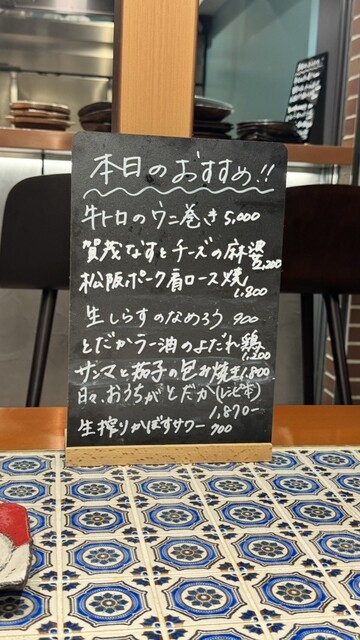 本日のおすすめ!!
牛トロのウニ巻き 5,000
賀茂なすとチーズの麻婆 2,200
松阪ポーク肩ロース焼 1,800
生しらすのなめろう 900
とだかラー油のよだれ鶏 1,200
サンマと茄子の包み焼き 1,800
日々、おうちがとだか(レシピ本) 1,870-
生搾りかぼすサワー 700